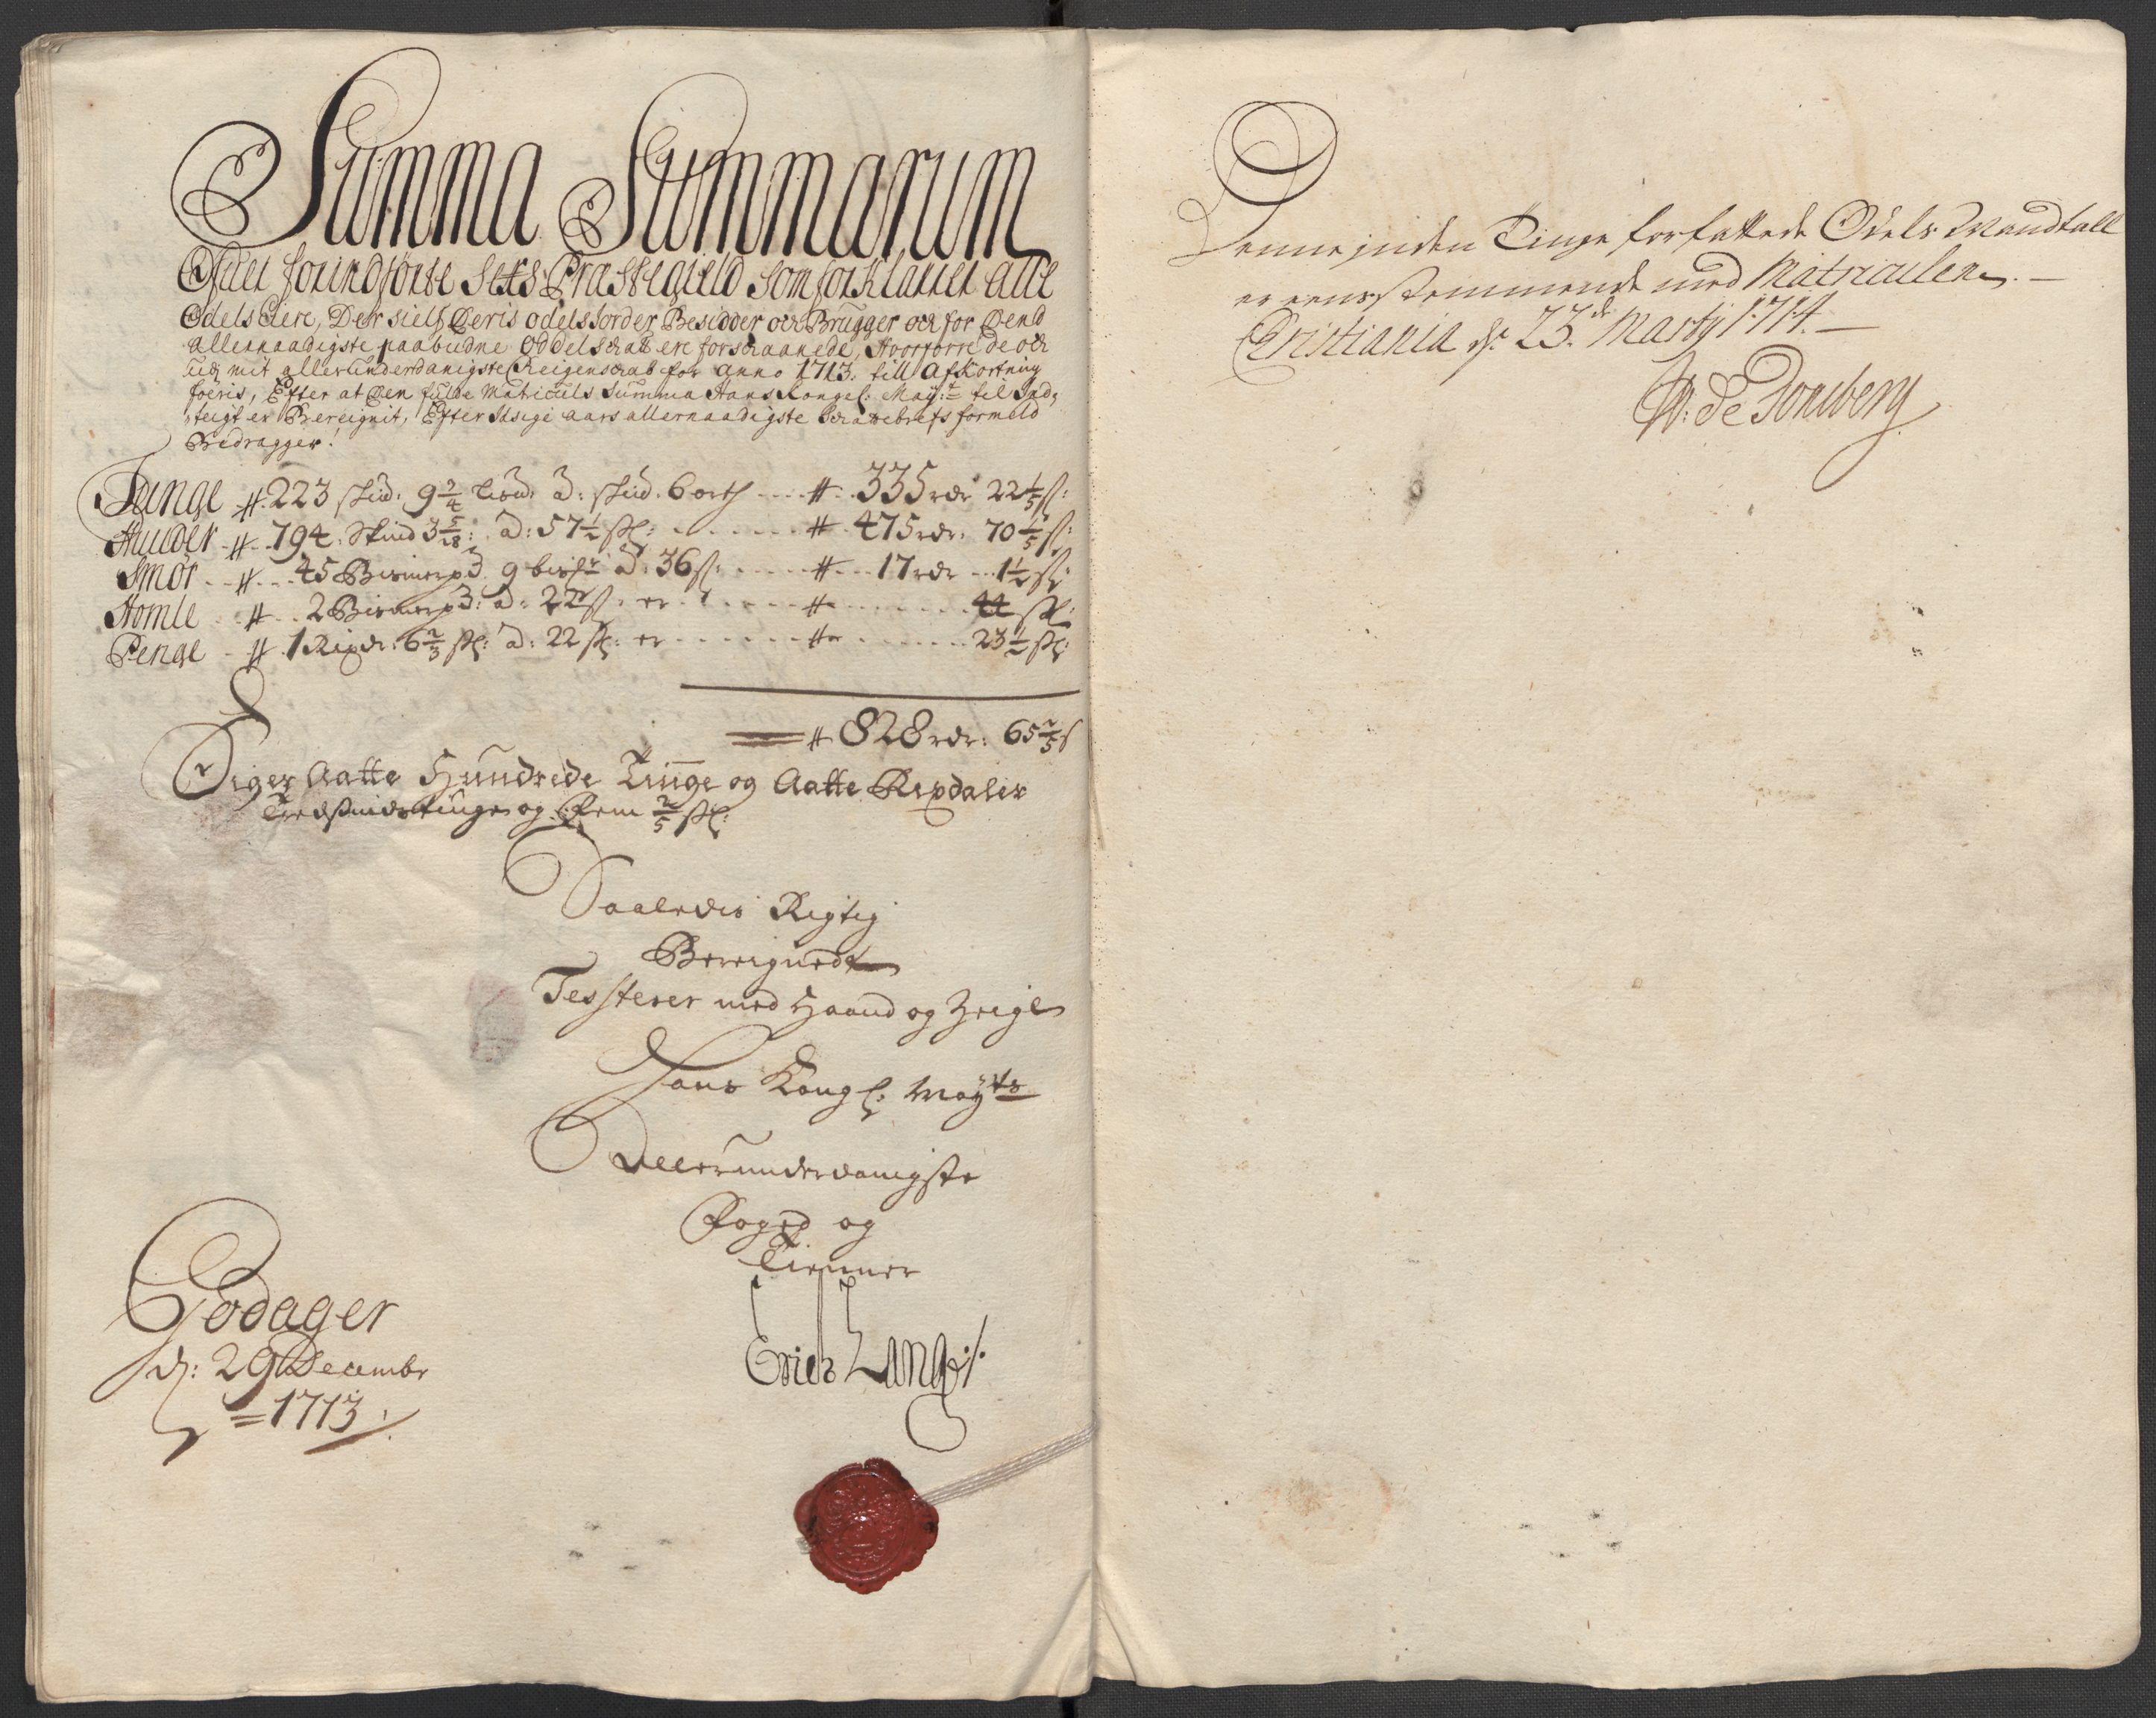 Summa Summarum
Ofver forindførte Sex Præstegield som forklarter alle
Odels Eiere, Der sielf Deris odels Jorder Besidder och Brugger och for Dend
allernaadigste paabudne Oddelskatt ere forskaanede, Hvorforre de och
udj mit allerunderdanigste Reigenskab for anno 1713. till Afkortning
føris, Efter at Den fulde Matriculs Summa Hans Kongel: May:t til Ind,
tegt er Bereignit, Efter Itzige aars allernaadigste Skattebrefs formeld
Bedragger!
Tunge # 223 skud: 9 3/4 Lisd: a: skud. 6 orth ---- # 335 rdr 22 1/5 s:
Huuder # 794. Skind 3 5/18: a: 57 1/2 sk: ---- # 475 rdr: 70 1/5 s:
Smør # 45 Bismerpd 9 a: 36 s: ---- # 17 rdr 1 1/2 sk:
Homle # 2 Bismerpd: a: 22 s: er ---- # 44 sk:
Penge # 1 Rixdr: 6 2/3 sk: a: 22 sk: er ---- # 23 1/2 sk:
# 828 rdr: 65 2/5 s
Siger Aatte Hundrede Tiuge og Aatte Rixdaler
Tredsindstiuge og Fem 2/5 sk:
Saaledis Rigtig
Bereignedt
Testerer med Haand og Zeigl
Hans Kongl: Mayts
Allerunderdanigste
Foged og
Tienner
Erich Lange
Godager
d: 29 Decembr
1713.
Denne inden Tinge forfattede Odels Mandtall
er eensstemmende med Matriculen. —
Cristiania d. 23de Martij 1714. —
W: de Tonsberg